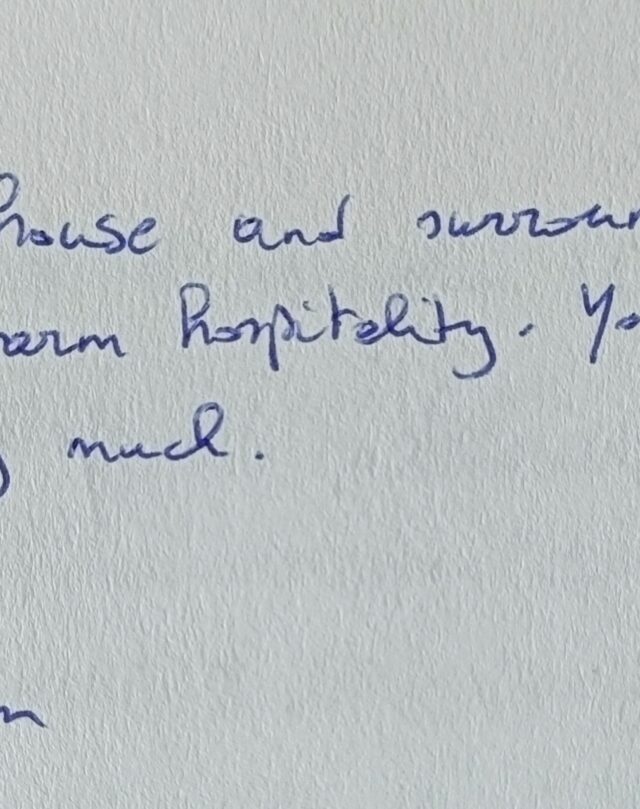 house and surroun
arm hospitality. Yo
y much.
n